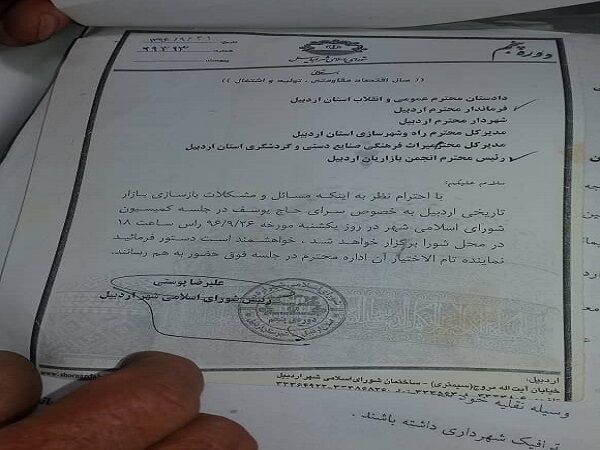 دوره پنجم
تاریخ: ۱۳۹۶/۹/۲۱
شماره: ۹۹۳۹۳
(( سال اقتصاد مقاومتی ، تولید و اشتغال ))
دادستان محترم عمومی و انقلاب استان اردبیل
فرماندار محترم اردبیل
شهردار محترم اردبیل
مدیرکل محترم راه وشهرسازی استان اردبیل
مدیرکل محترم میراث فرهنگی صنایع دستی و گردشگری استان اردبیل
رئیس محترم انجمن بازاریان اردبیل
سلام علیکم:
با احترام نظر به اینکه مسائل و مشکلات بازسازی بازار
تاریخی اردبیل به خصوص سرای حاج یوسف در جلسه کمیسیون
شورای اسلامی شهر در روز یکشنبه مورخه ۹۶/۹/۲۶ راس ساعت ۱۸
در محل شورا برگزار خواهد شد . خواهشمند است دستور فرمائید
نماینده تام الاختیار آن اداره محترم در جلسه فوق حضور به هم رسانند.
علیرضا پوستی
رئیس شورای اسلامی شهر اردبیل
اردبیل:
خیابان آیت اله مروج(سیمتری) - ساختمان شورای اسلامی شهر اردبیل
وسیله نقلیه خود
ترافیک شهرداری داشته باشند .